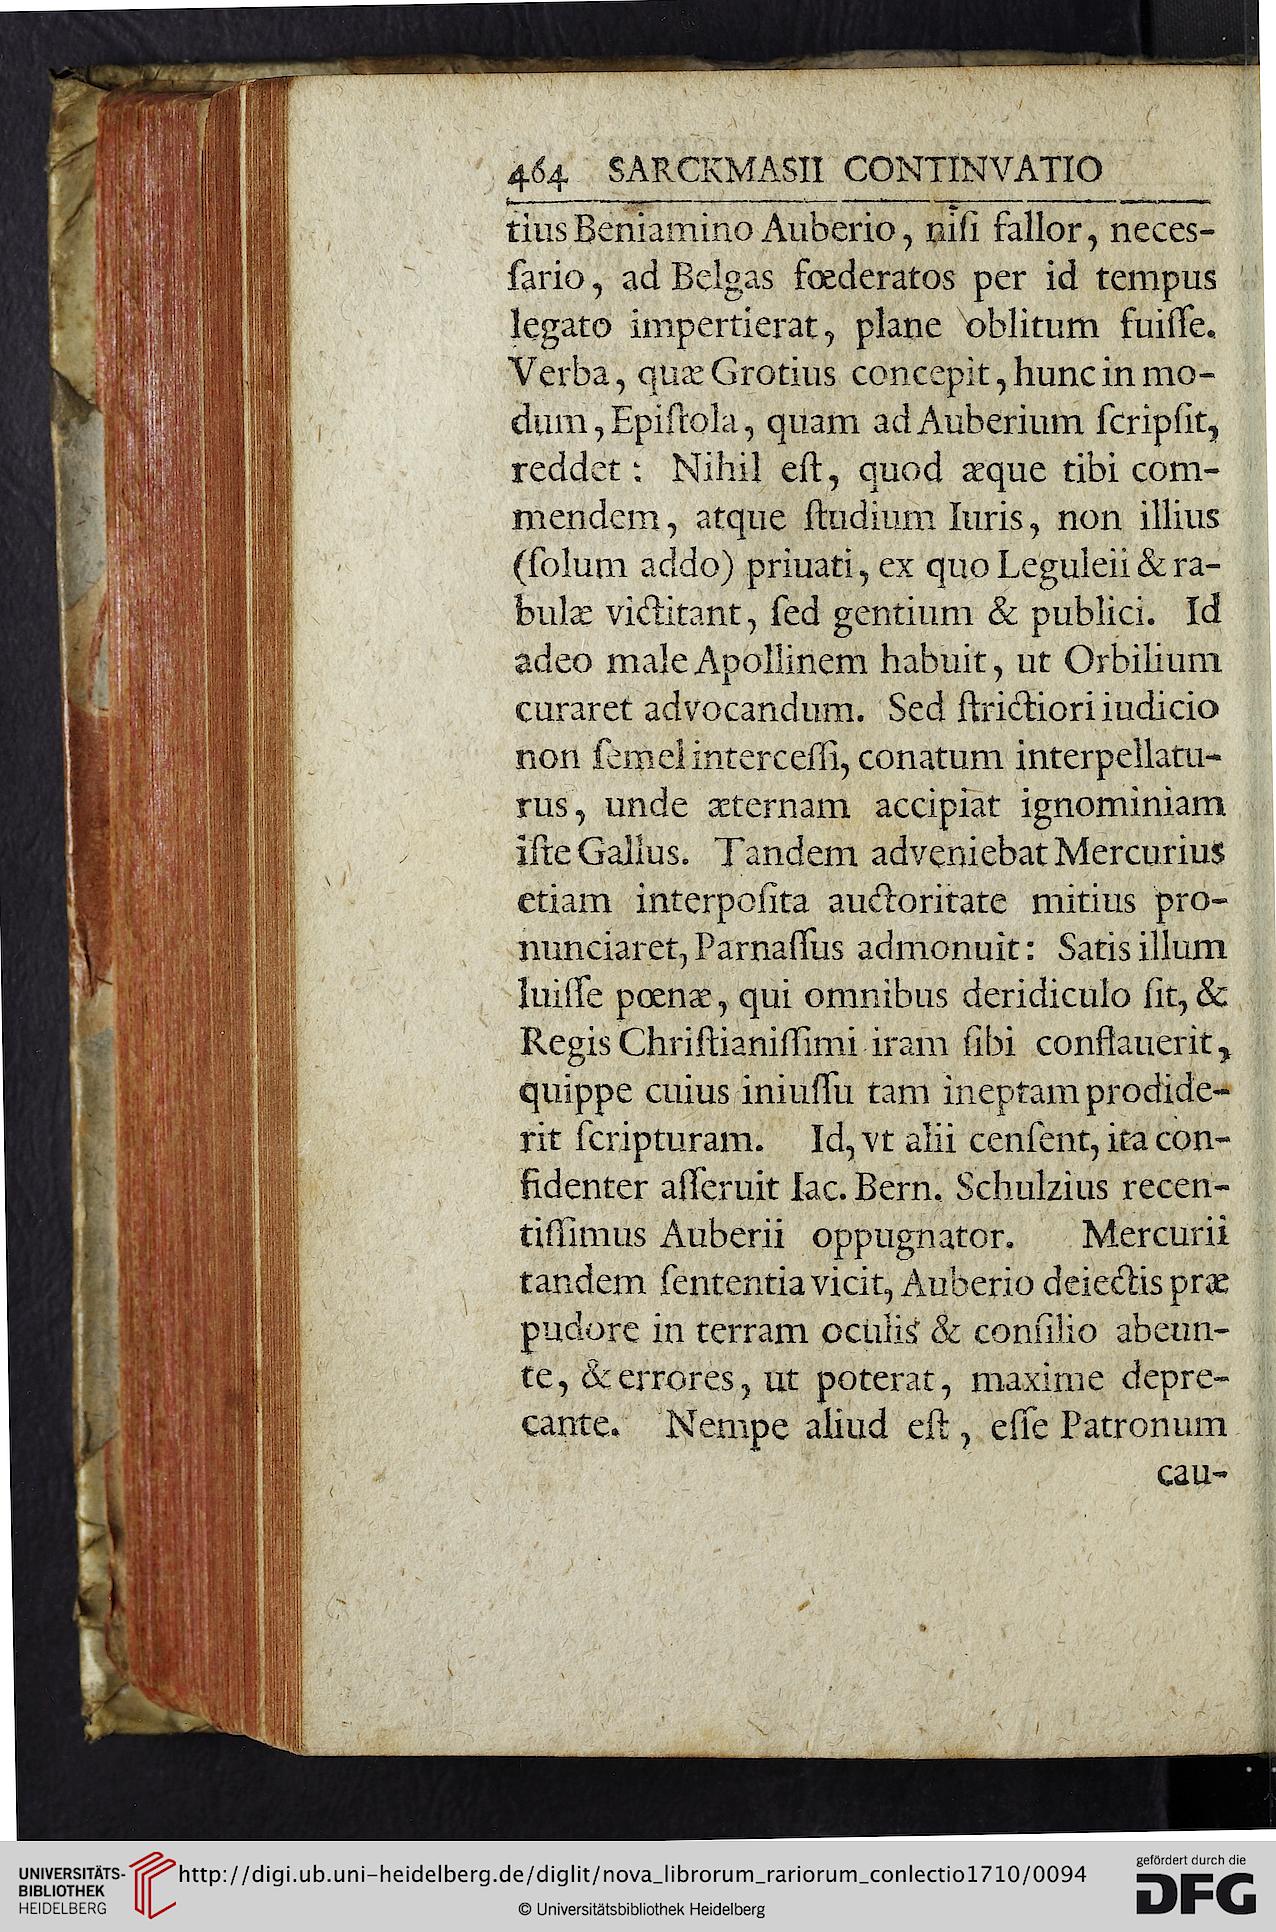 464 SARCKMASII CONTINVATIO
tius Beniamino Auberio, niſi fallor, neces-
ſario, ad Belgas fœderatos per id tempus
legato impertierat, plane oblitum fuiſſe.
Verba, quæ Grotius concepit, hunc in mo-
dum, Epiſtola, quam ad Auberium ſcripſit,
reddet: Nihil eſt, quod æque tibi com-
mendem, atque ſtudium Iuris, non illius
(ſolum addo) priuati, ex quo Leguleii & ra-
bulæ victitant, ſed gentium & publici. Id
adeo male Apollinem habuit, ut Orbilium
curaret advocandum. Sed ſtrictiori iudicio
non ſemel interceſſi, conatum interpellatu-
rus, unde æternam accipiat ignominiam
iſte Gallus. Tandem adveniebat Mercurius
etiam interpoſita auctoritate mitius pro-
nunciaret, Parnaſſus admonuit: Satis illum
luiſſe pœnæ, qui omnibus deridiculo ſit, &
Regis Chriſtianiſſimi iram ſibi conflauerit,
quippe cuius iniuſſu tam ineptam prodide-
rit ſcripturam. Id, vt alii cenſent, ita con-
fidenter aſſeruit Iac. Bern. Schulzius recen-
tiſſimus Auberii oppugnator. Mercurii
tandem ſententia vicit, Auberio deiectis præ
pudore in terram oculis & conſilio abeun-
te, & errores, ut poterat, maxime depre-
cante. Nempe aliud eſt, eſſe Patronum
cau-
UNIVERSITÄTS-
BIBLIOTHEK
HEIDELBERG
http://digi.ub.uni-heidelberg.de/diglit/nova_librorum_rariorum_conlectio1710/0094
© Universitätsbibliothek Heidelberg
gefördert durch die
DFG